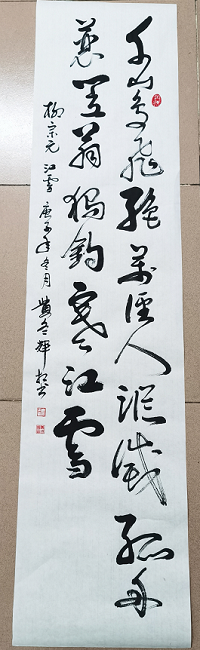 千山鸟飞绝万径人踪灭孤舟
蓑笠翁独钓寒江雪
柳宗元 江雪 庚子年冬月 黄冬辉书